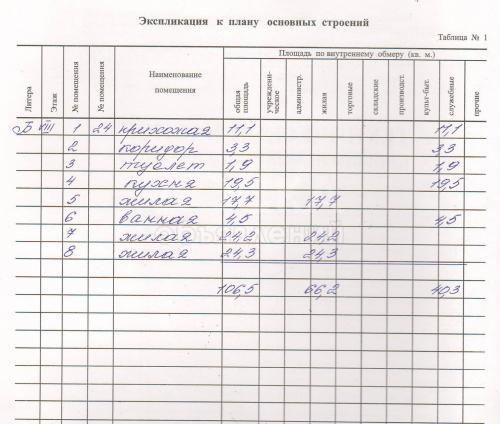 Экспликация к плану основных строений
Таблица № 1
Литера Этаж № помещения № помещения Наименование помещения Площадь по внутреннему обмеру (кв. м.)
общая площадь учрежденическое администр. жилая торговые складские производст. культ-быт. служебные прочие
Б VIII 1 24 прихожая 11,1 11,1
2 коридор 3,3 3,3
3 туалет 1,9 1,9
4 кухня 19,5 19,5
5 жилая 17,7 17,7
6 ванная 4,5 4,5
7 жилая 24,2 24,2
8 жилая 24,3 24,3
106,5 66,2 40,3